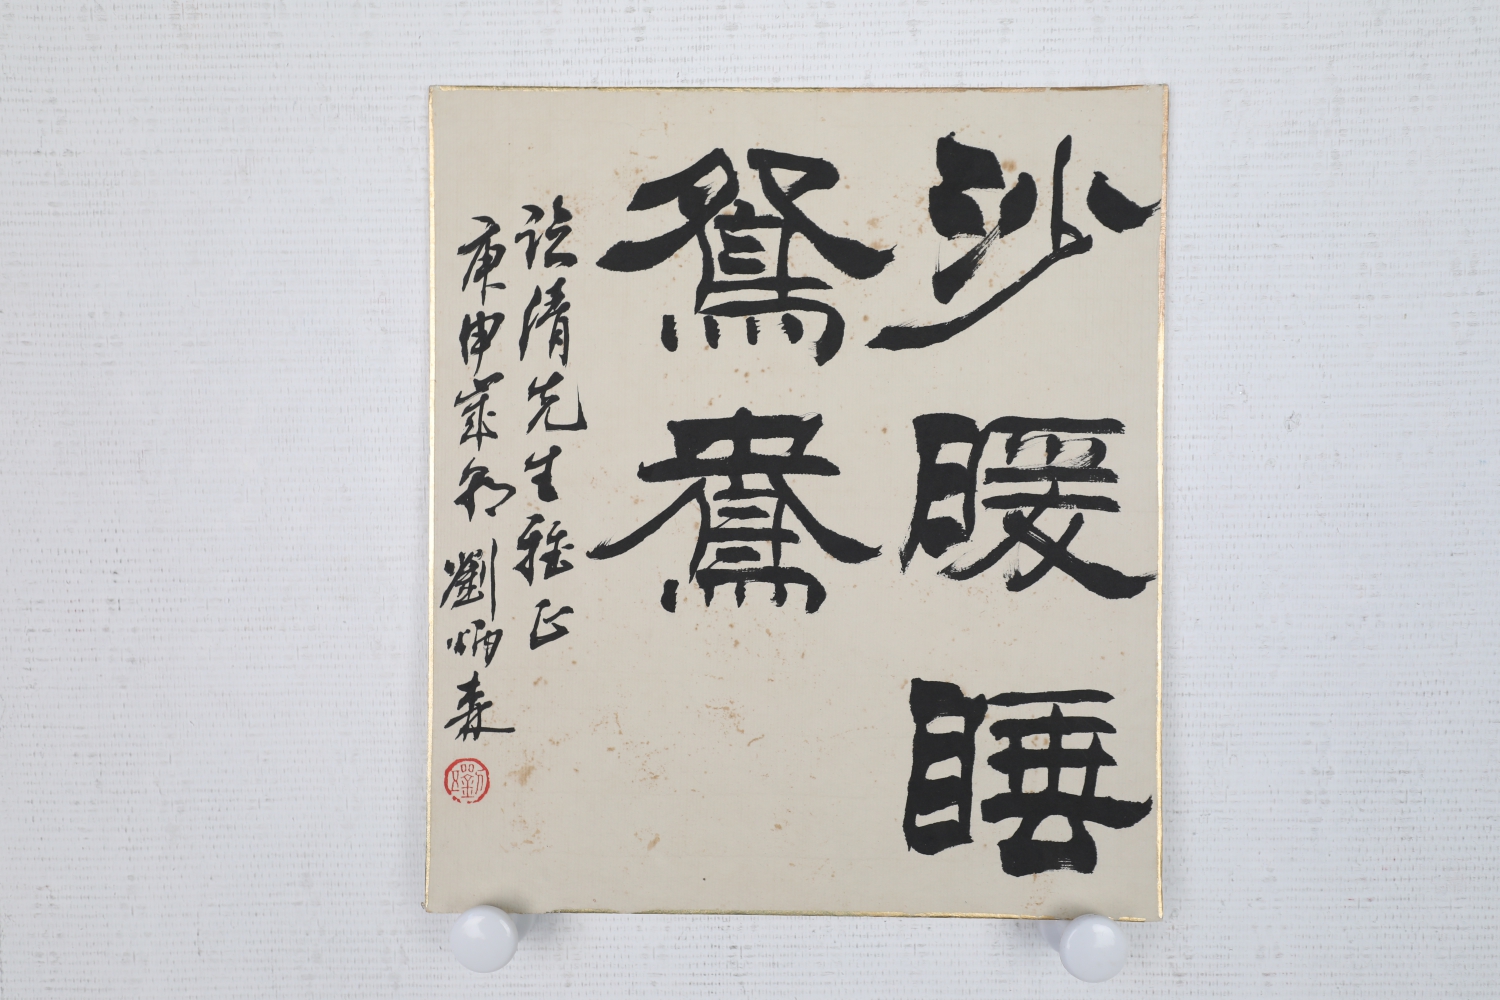 沙暖睡
鴛鴦
清先生雅正
庚申歲初劉炳森
劉